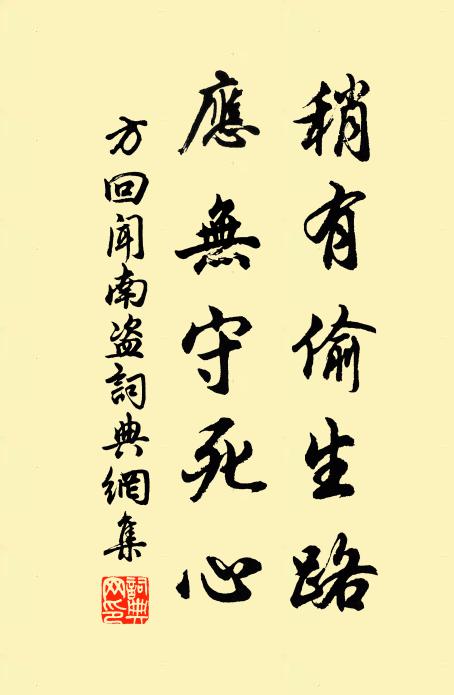 稍有偷生路
應無守死心
方回聞南盗詞典網集
詞典网印